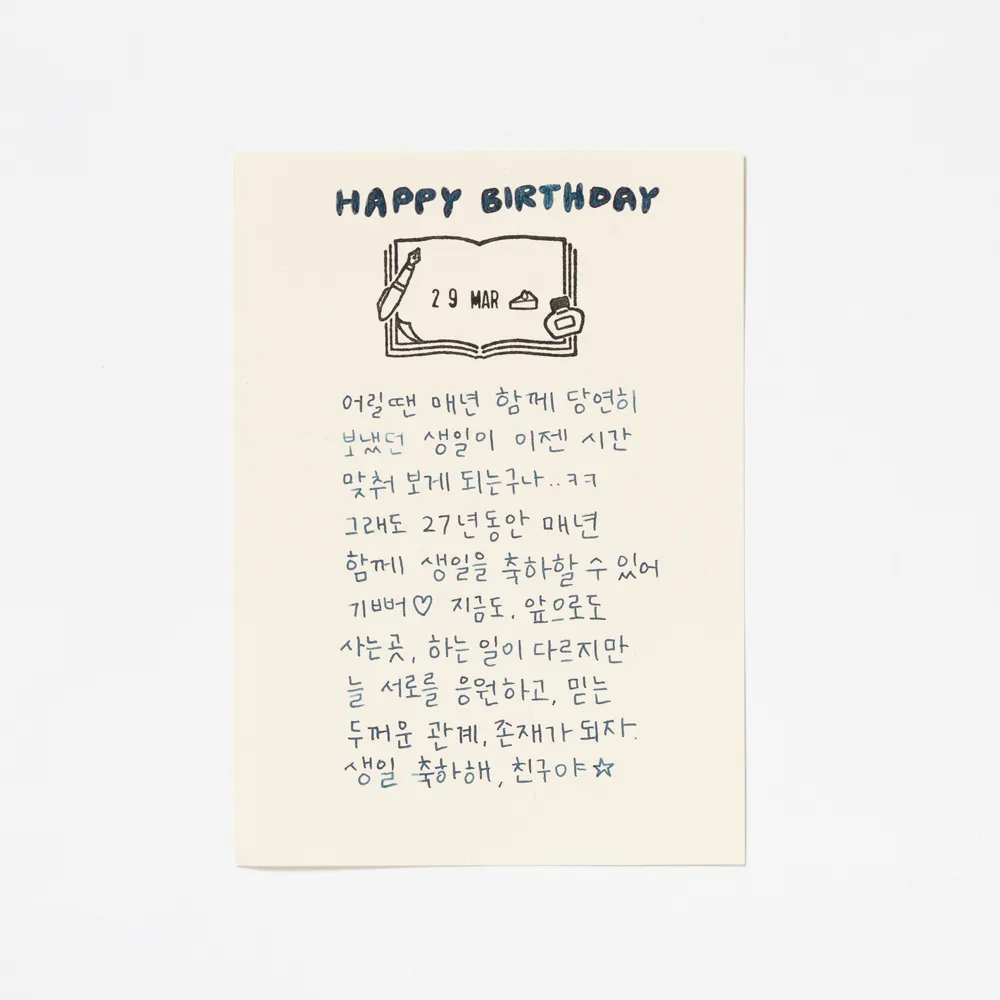 HAPPY BIRTHDAY
29 MAR
어릴땐 매년 함께 당연히
보냈던 생일이 이젠 시간
맞춰 보게 되는구나..ㅋㅋ
그래도 27년동안 매년
함께 생일을 축하할 수 있어
기뻐♡ 지금도, 앞으로도
사는곳, 하는 일이 다르지만
늘 서로를 응원하고, 믿는
두꺼운 관계, 존재가 되자.
생일 축하해, 친구야☆